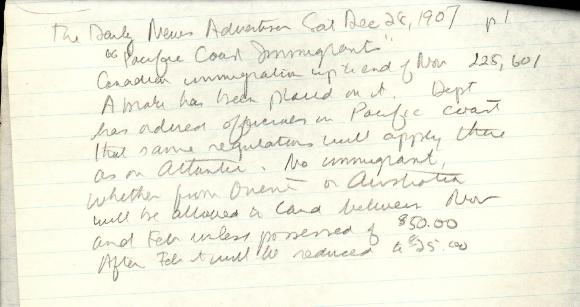 The Daily News Advertiser Sat Dec 28, 1907 p 1
"Pacific Coast Immigrants"
Canadian immigration up to end of Nov 225,601
A brake has been placed on it. Dept
has ordered officials on Pacific coast
that same regulations will apply there
as on Atlantic. No immigrant,
whether from Orient or Australia
will be allowed to land between Nov
and Feb unless possessed of $50.00
After Feb it will be reduced to $25.00